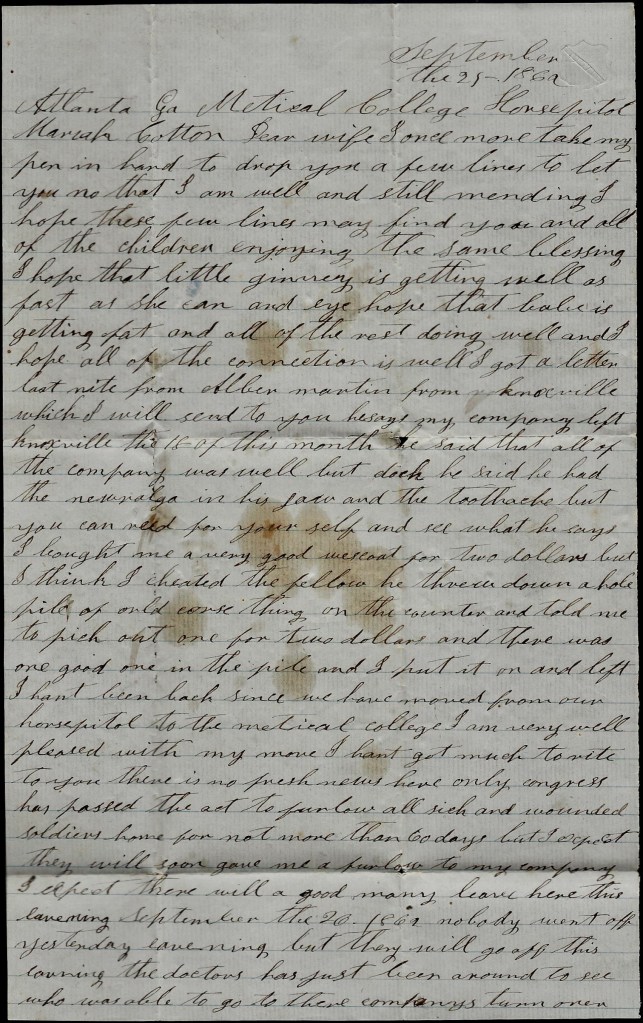 September
the 25-1862
Atlanta Ga Metical College Horsepitol
Mariah Cotton Dear wife I once more take my
pen in hand to drop you a few lines to let
you no that I am well and still mending I
hope these few lines may find you and all
of the children enjoying the same blessing
I hope that little ginney is getting well as
fast as she can and eye hope that babe is
getting fat and all of the rest doing well and I
hope all of the connection is well I got a letter
last nite from Alber martin from knoxville
which I will send to you he says my company left
knoxville the 18 of this month he said that all of
the company was well but dock he said he had
the newralga in his jaw and the toothache but
you can reed for your self and see what he says
I bought me a very good wescoat for two dollars but
I think I cheated the fellow he threw down a hole
pile of orld corse thing on the counter and told me
to pick out one for two dollars and there was
one good one in the pile and I put it on and left
I hant been back since we have moved from our
horsepitol to the metical college I am very well
pleased with my move I hant got much to rite
to you there is no fresh news here only congress
has passed the act to furlow all sick and wounded
soldiers home for not more than 60 days but I expect
they will soon gave me a furlow to my company
I expect there will a good many leave here this
eavening September the 26. 1862 nobody went off
yesterday eavening but they will go off this
eavning the doctors has just been around to see
who was able to go to there companys turn over